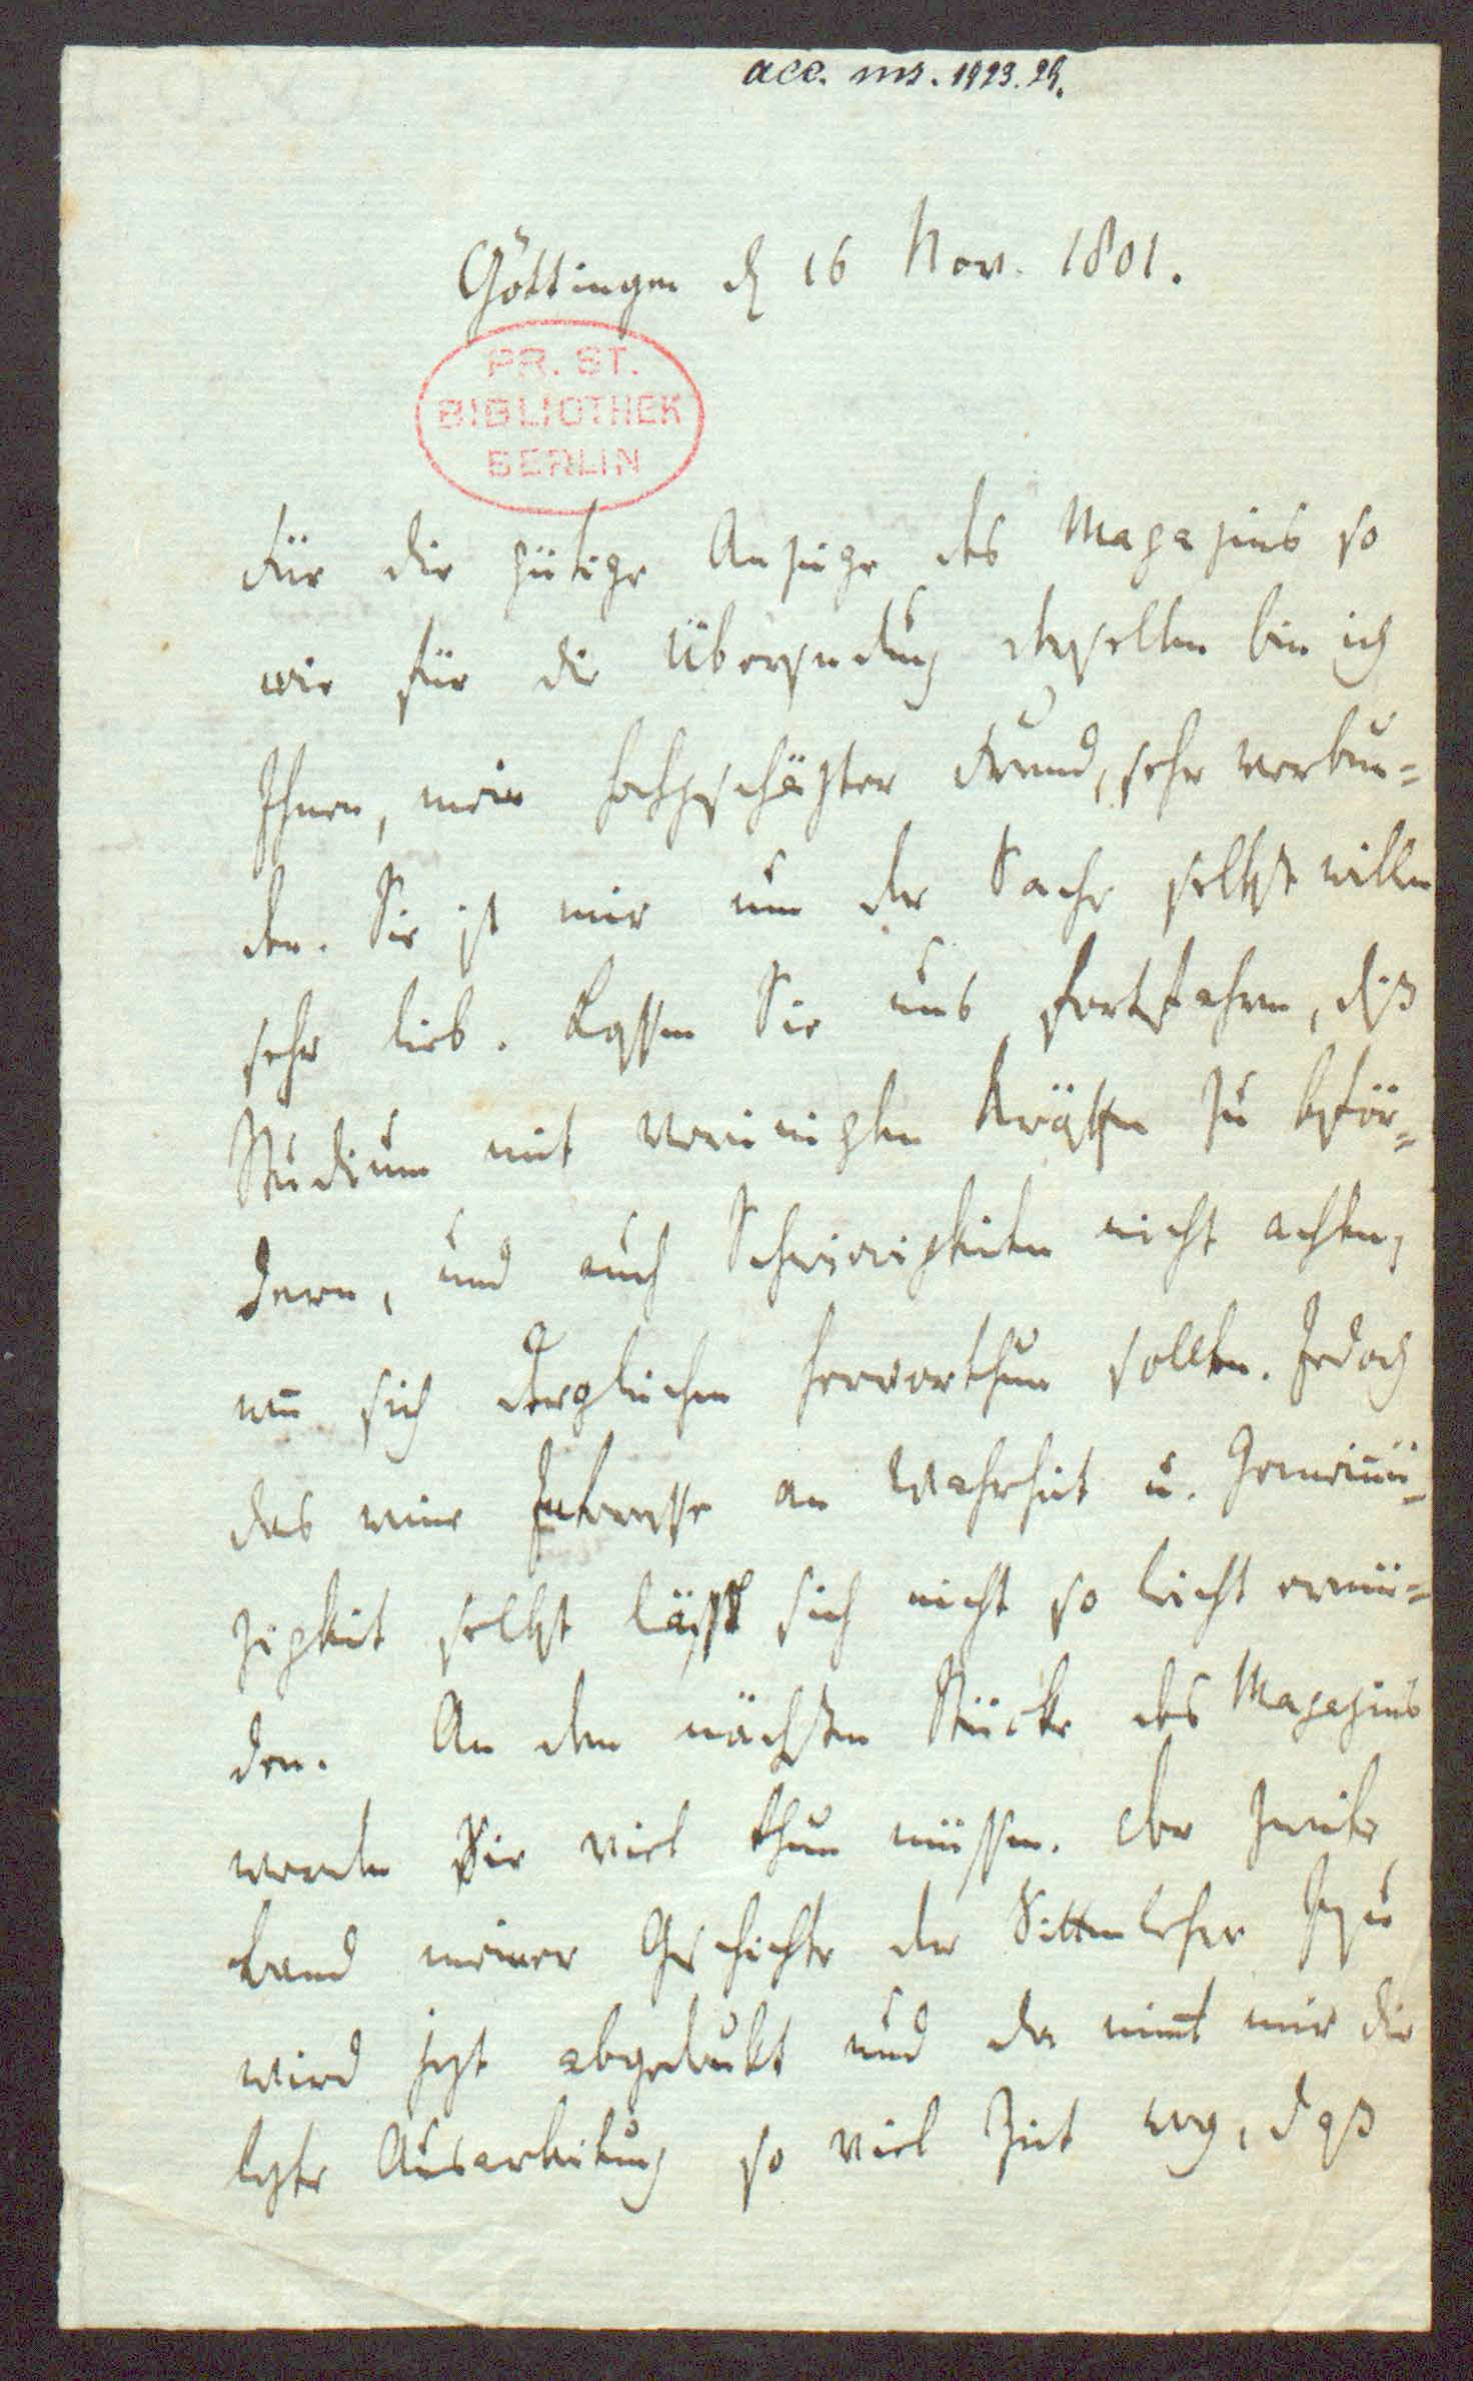 acc. ms. 1923.29.
Göttingen d 16 Nov. 1801.
PR. ST.
BIBLIOTHEK
BERLIN
Für die gütige Anzeige des Magazins so
wie für die Übersendung desselben bin ich
Ihnen, mein hochgeschäzter Freund, sehr verbun=
den. Sie ist mir um der Sache selbst willen
sehr lieb. Lassen Sie uns fortfahren, diß
Studium mit vereinigten Kräften zu beför=
dern, und auch Schwierigkeiten nicht achten,
weñ sich dergleichen hervorthun sollten. Jedoch
das reine Interesse an Wahrheit u. Gemeinnü=
zigkeit selbst läßt sich nicht so leicht ermü=
den. An dem nächsten Stücke des Magazins
werden Sie viel thun müssen. Der zweite
Band meiner Geschichte der Sittenlehre Jesu
wird jezt abgedrukt und da nim̄t mir die
lezte Ausarbeitung so viel Zeit weg, daß